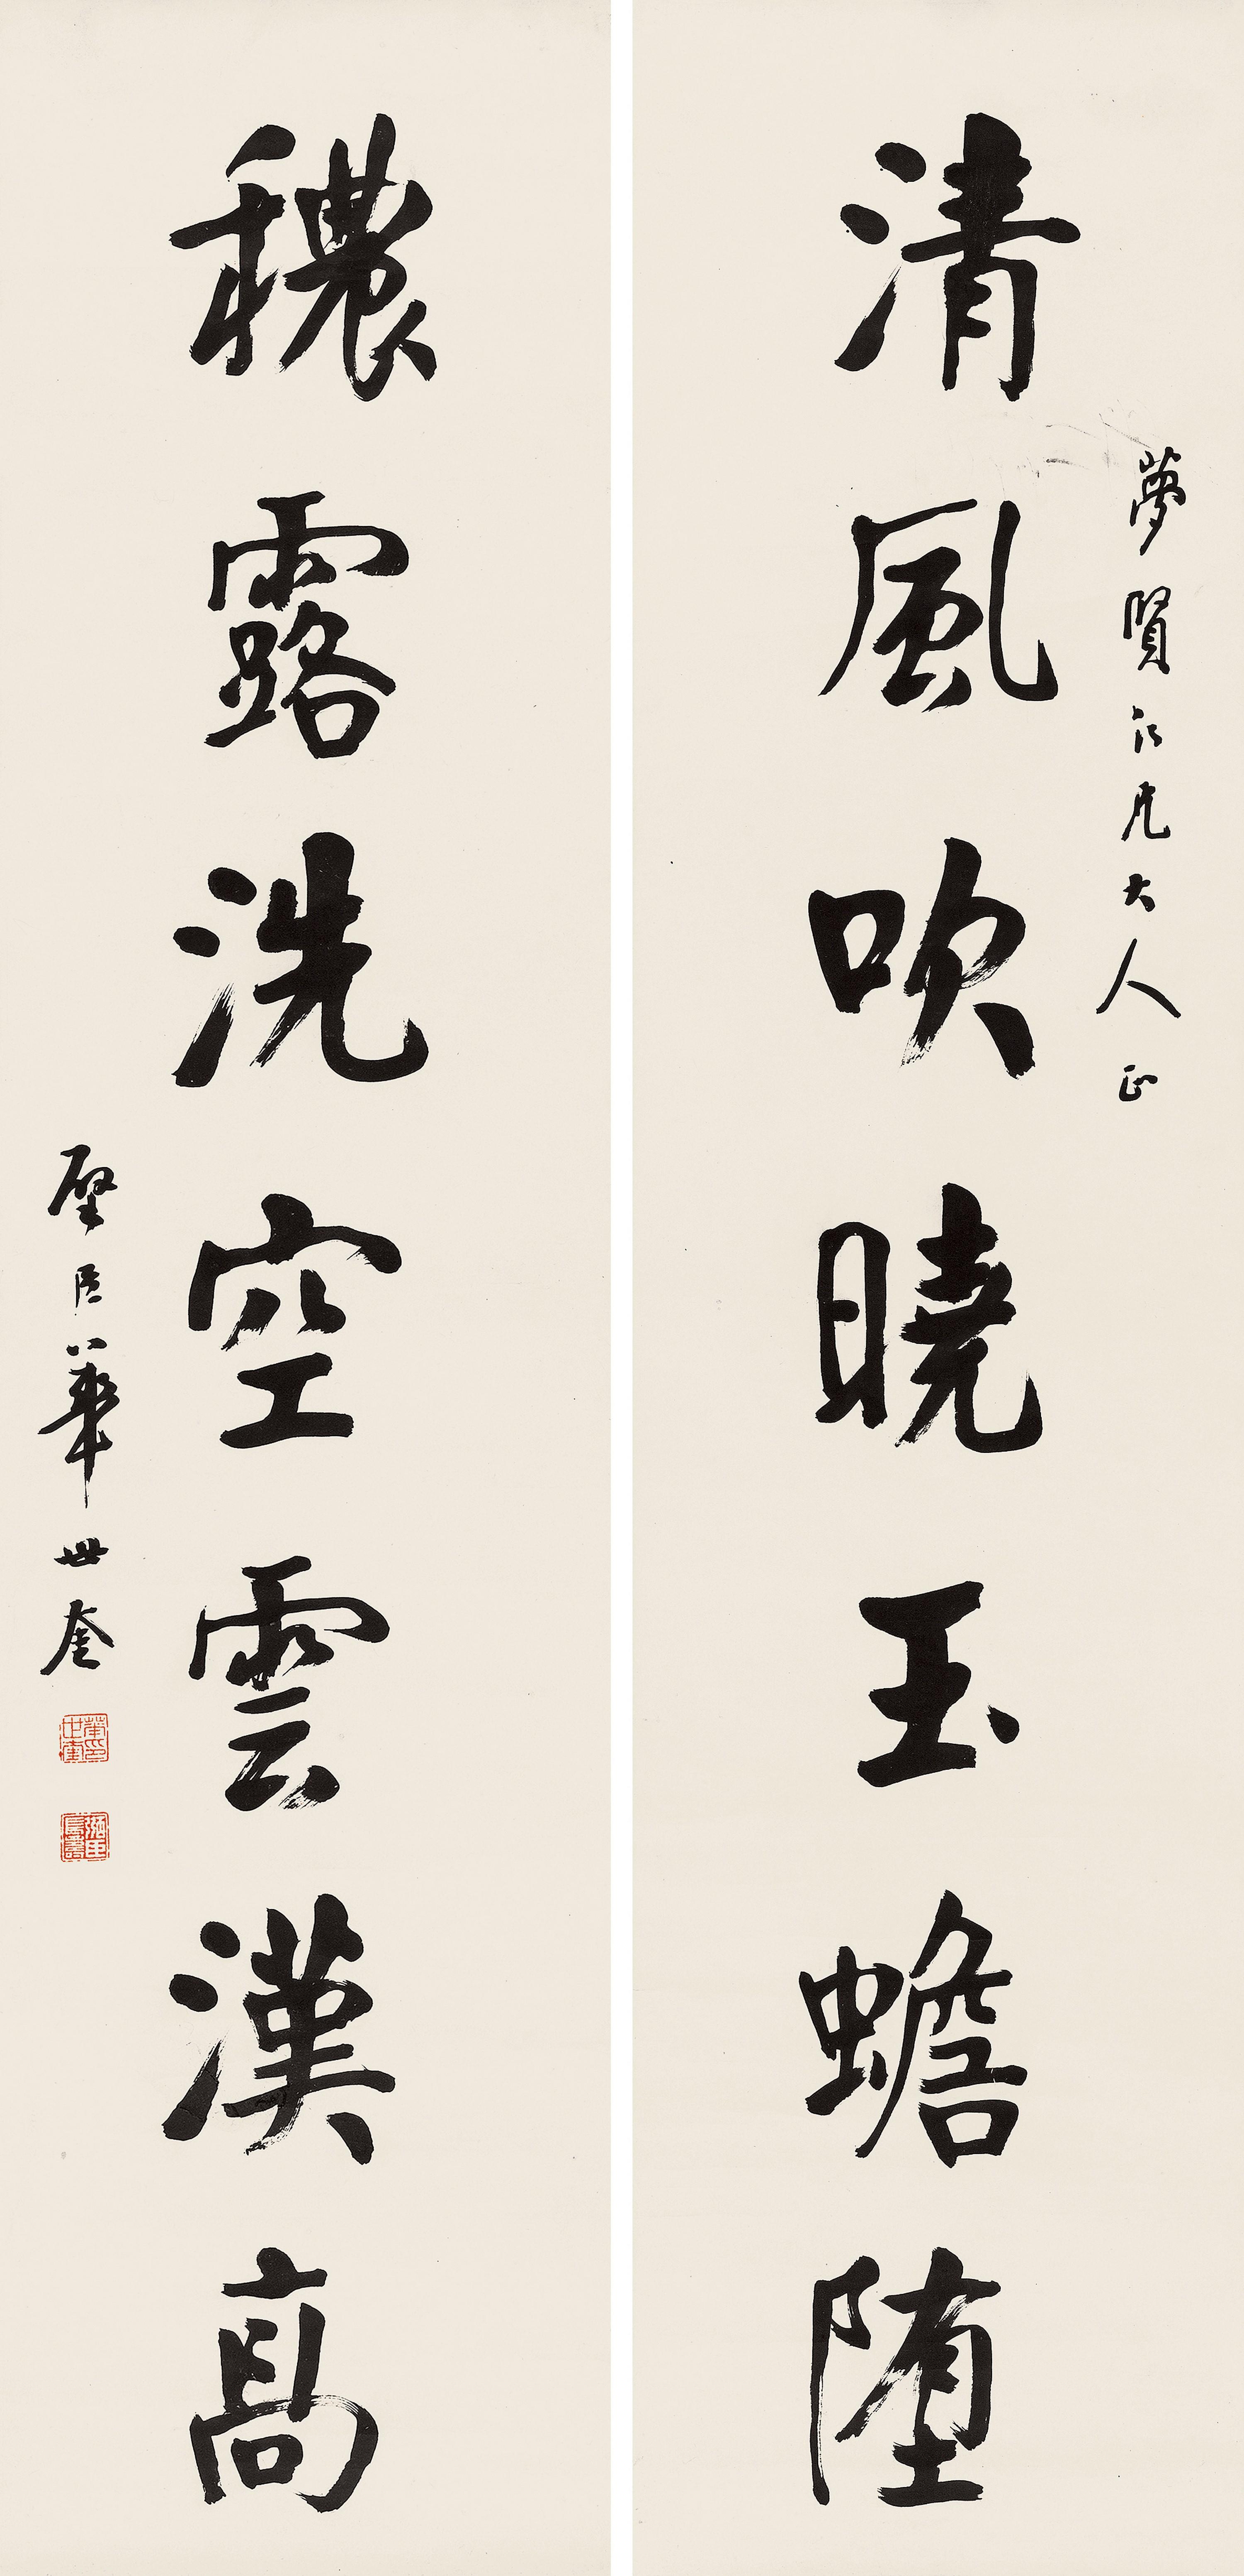 夢賢仁兄大人正
清風吹曉玉蟾堕
穠露洗空雲漢高
璧臣華世奎
華印世奎